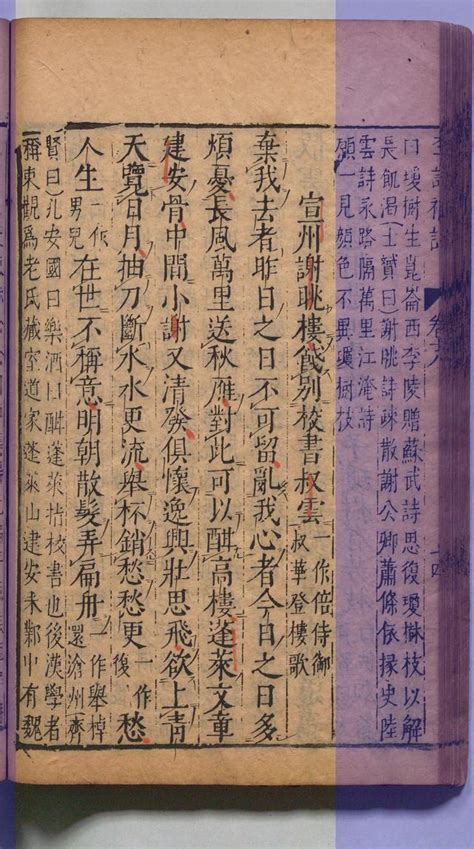 卷十八 十四
曰瓊樹生崑崙西李陵贈蘇武詩思復瓊樹枝以解
長飢渴(士贇曰)謝朓詩疎散謝公卿蕭條依掾史陸
雲詩永路隔萬里江淹詩
願一見顏色不異瓊樹枝
宣州謝朓樓餞別校書叔雲 一作倍侍御叔華登樓歌
棄我去者昨日之日不可留亂我心者今日之日多
煩憂長風萬里送秋鴈對此可以酣高樓蓬萊文章
建安骨中間小謝又清發俱懷逸興壯思飛欲上青
天覽日月抽刀斷水水更流舉杯銷愁愁更一作復愁
人生一作男兒在世不稱意明朝散髮弄扁舟一作舉棹還滄州齊
賢曰)孔安國曰樂酒曰酣蓬萊指校書也後漢學者
稱東觀爲老氏藏室道家蓬萊山建安末鄴中有魏